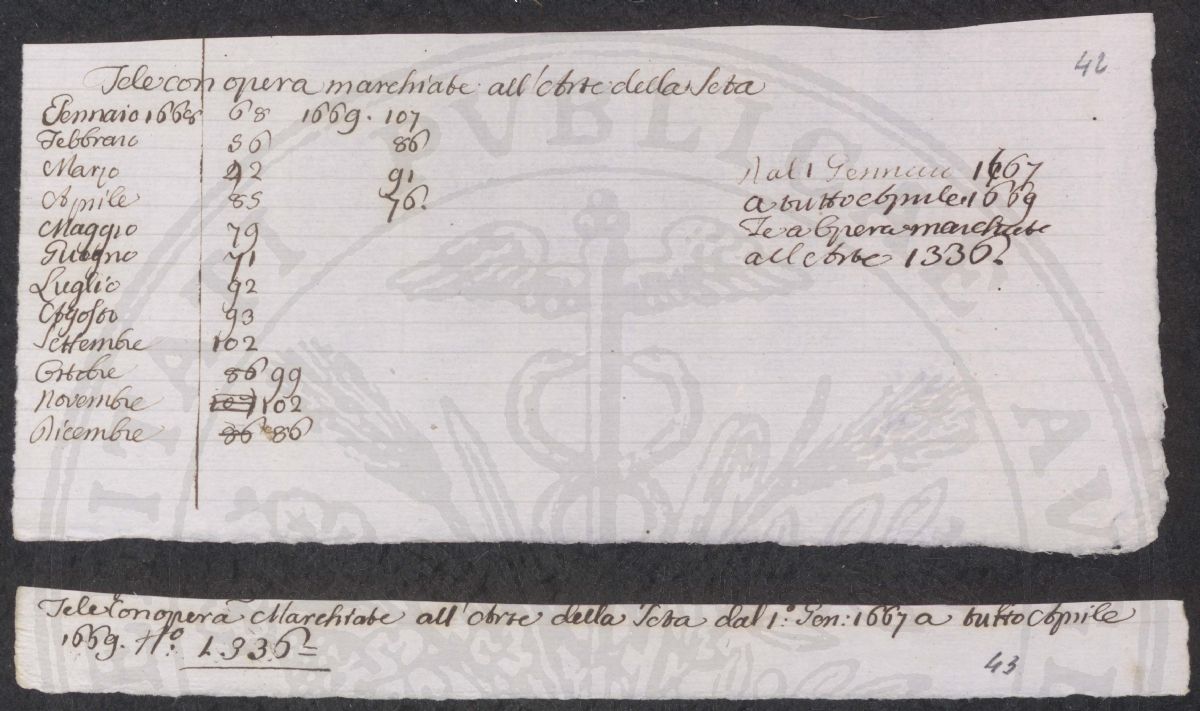 42
Tele con opera marchiate all'Arte della Seta
Gennaio 1668 68 1669. 107
Febbraio 56 86
Marzo 42 91
Aprile 85 76.
Maggio 79
Giugno 71
Luglio 92
Agosto 93
Settembre 102
Ottobre 86 99
Novembre 102
Dicembre 86 86
Dal 1 Gennaio 1667
a tutto Aprile 1669
Te a Opera marchiate
all'Arte 1336
Tele Con opera Marchiate all'Arte della Seta dal 1.º Gen: 1667 a tutto Aprile
1669. Nº 1336
43
PUBLICAE